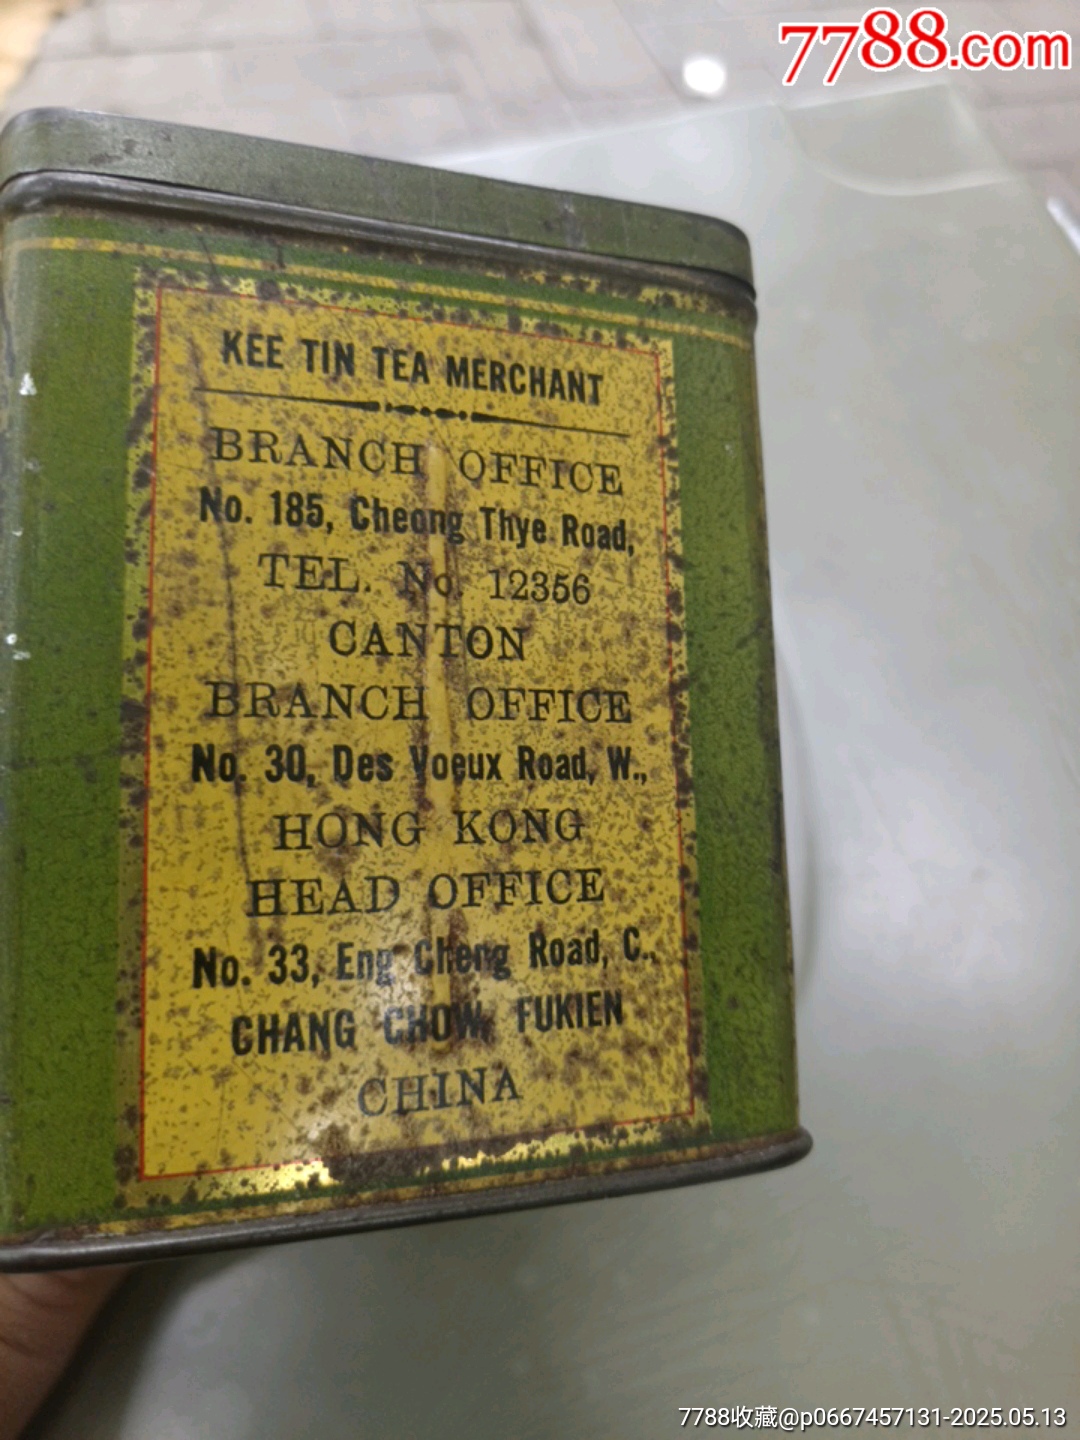 7788.com
KEE TIN TEA MERCHANT
BRANCH OFFICE
No. 185, Cheong Thye Road,
TEL. No. 12356
CANTON
BRANCH OFFICE
No. 30, Des Voeux Road, W.,
HONG KONG
HEAD OFFICE
No. 33, Eng Cheng Road, C.,
CHANG CHOW, FUKIEN
CHINA
7788收藏@p0667457131-2025.05.13